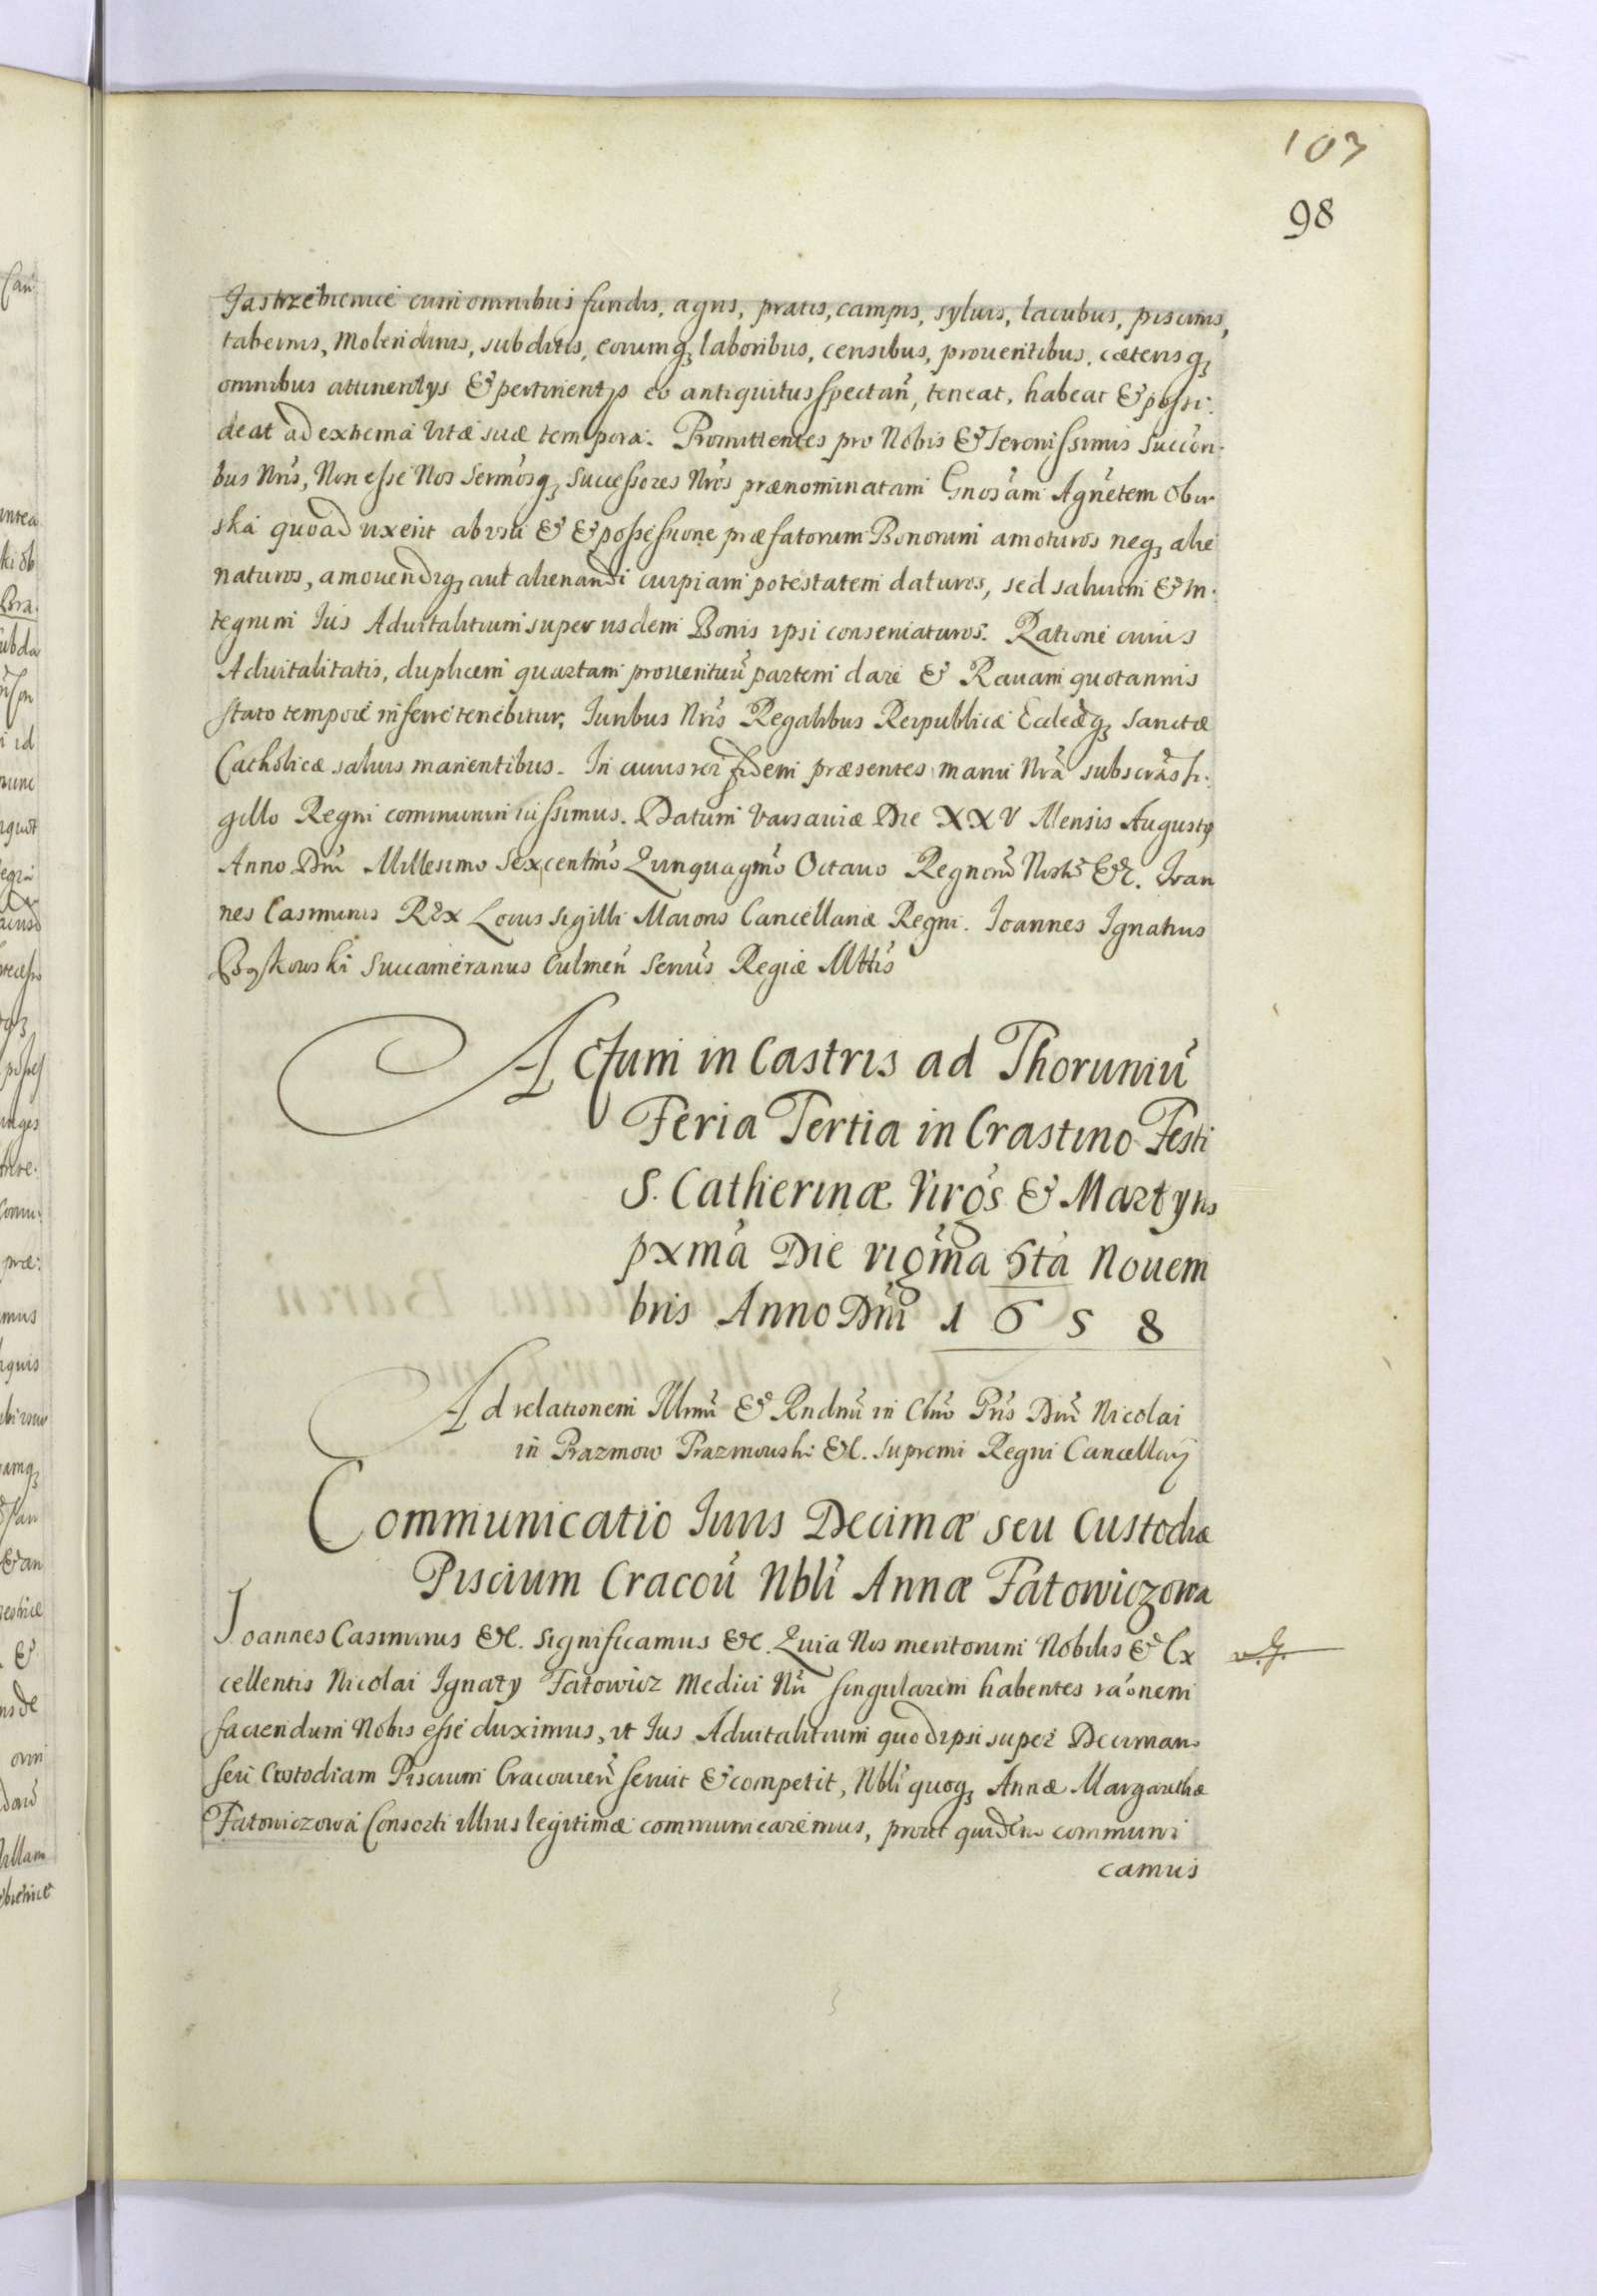 103
98
Jastrzebienie cum omnibus fundis, agris, pratis, campis, syluis, lacubus, piscinis,
tabernis, Molendinis, subditis, eorumq3 laboribus, censibus, prouentibus, cæterisq3
omnibus attinentijs & pertinentijs eo antiquitus spectañ, teneat, habeat & possi-
deat ad extrema vitæ suæ tempora. Promittentes pro Nobis & Serenissimis Succori-
bus Nris, Non esse Nos Sermosq3 Successores Nros prænominatam Gnosam Agnetem Obor
ska quoad vixerit ab vsu & & possessione præfatorum Bonorum amoturos neq3 alie
naturos, amouendiq3 aut alienandi cuipiam potestatem daturos, sed saluum & in-
tegrum Ius Aduitalitium super iisdem Bonis ipsi conseruaturos. Ratione cuius
Aduitalitatis, duplicem quartam prouentuu partem dare & Rauam quotannis
stato tempore inferre tenebitur, Iuribus Nris Regalibus Reipublicæ Ecclæq3 Sanctæ
Catholicæ saluis manentibus. In cuius rei fidem præsentes manu Nra subscras si-
gillo Regni communiri iussimus. Datum Varsauiæ Die XXV Mensis Augusti
Anno Dni Millesimo Sexcentmo Quinquagmo Octauo Regnoru Nrorū &c. Ioan
nes Casimirus Rex Locus sigilli Maioris Cancellariæ Regni. Joannes Ignatius
Bąkowski Succamerarius Culmeñ Secrius Regiæ Mttis
Actum in Castris ad Thoruniū
Feria Tertia in Crastino Festi
S. Catherinæ Virgs & Martyris
pxma Die vigma 6ta Nouem
bris Anno Dni 1658
Ad relationem Illmi & Rndmi in Chro Pris Dni Nicolai
in Prazmow Prazmowski &c. Supremi Regni Cancellarij
Communicatio Iuris Decimæ seu Custodiæ
Piscium Cracoū Nbli Annæ Fatowiczowa
Joannes Casimirus &c. Significamus &c. Quia Nos meritorum Nobilis & Ex
cellentis Nicolai Ignaty Fatowicz Medici Nri singularem habentes raonem
faciendum Nobis esse duximus, vt Ius Aduitalitium quod ipsi super Decimam
seu Custodiam Piscium Cracouieñ seruit & competit, Nbli quoq3 Annæ Margarethæ
Fatowiczowa Consorti illius legitimæ communicaremus, prout quidem communi
camus